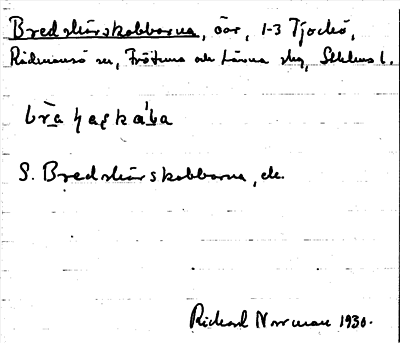 Bredskärskobbarna, öar, 1-3 Tjockö,
Rådmansö sn, Frötuna och Länna skg, Sthlms l.
brà ɧaʂkába
S. Bredskärskobbarna, ek.
Rickard Norrman 1930.